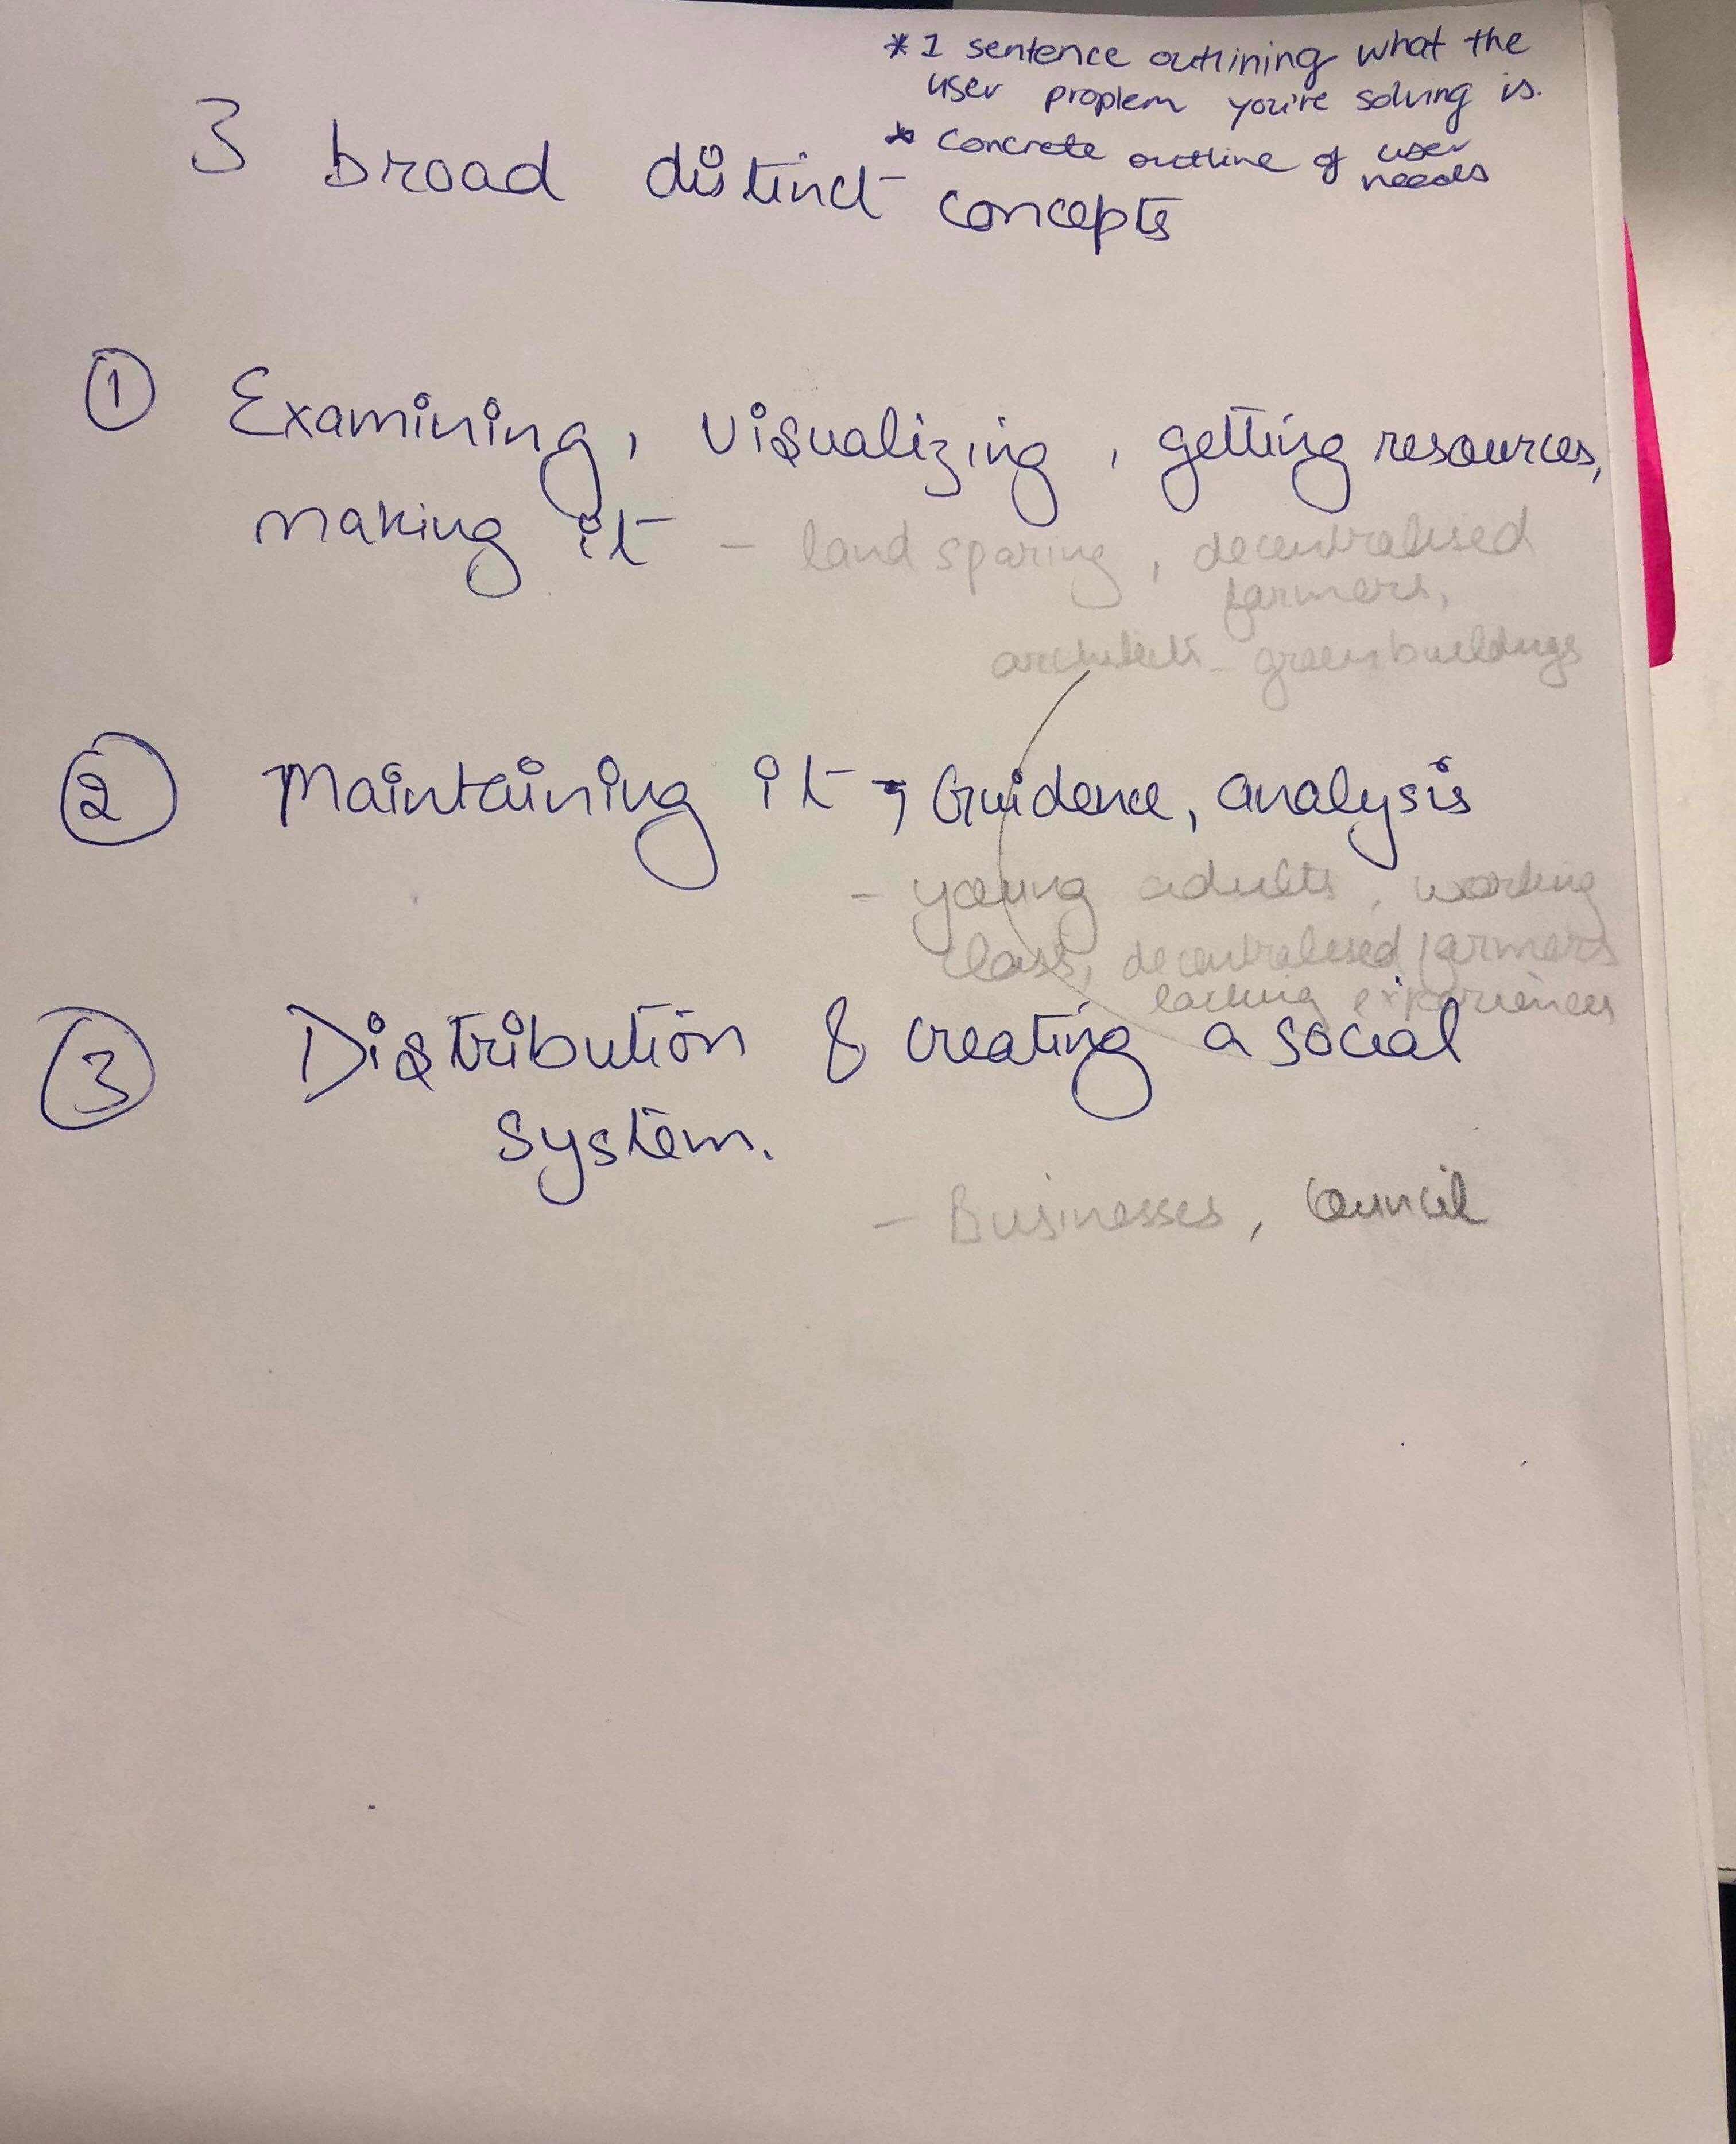 * 1 sentence outlining what the
user proplem you're solving is.
* Concrete outline of user
needs
3 broad distinct concepts
1 Examining, visualizing, getting resources,
making it - land sparing, decentralised
farmers,
architects - green buildings
2 Maintaining it → Guidence, analysis
- young adults, working
class, decentralised farmers
lacking experiences
3 Distribution & creating a social
system.
- Businesses, Council